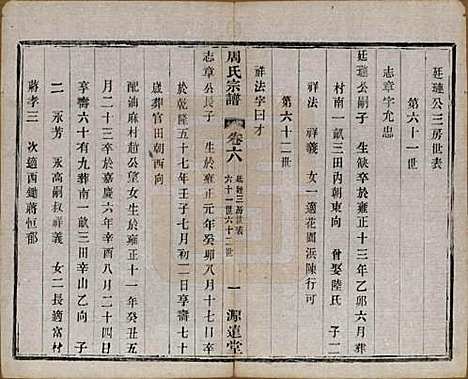 廷璉公三房世表
第六十一世
志章字允忠
廷璉公嗣子 生缺卒於雍正十三年乙卯六月葬
村南一畝三田內朝東向 曾娶陸氏 子二
祥法 祥義 女一適花園浜陳行可
第六十二世
祥法字曰才
周氏宗譜 卷六 廷璉三房世表 六十一世六十二世 一 源遠堂
志章公長子 生於雍正元年癸卯八月十二日卒
於乾隆五十七年壬子七月初二日享壽七十
歲葬官田朝西向
配油麻村趙公望女生於雍正十一年癸丑五
月二十三日卒於嘉慶六年辛酉八月二十四日
享壽六十有九葬南一畝三田辛山乙向 子
二 永芳 永高嗣叔祥義 女二長適富村
蔣孝三 次適西鋤蔣恒郁